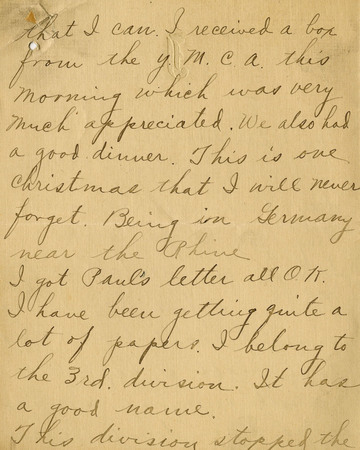 that I can. I received a box
from the Y. M. C. A. this
morning which was very
much appreciated. We also had
a good dinner. This is one
Christmas that I will never
forget. Being in Germany
near the Rhine
I got Paul's letter all O.K.
I have been getting quite a
lot of papers. I belong to
the 3rd. division. It has
a good name.
This division stopped the